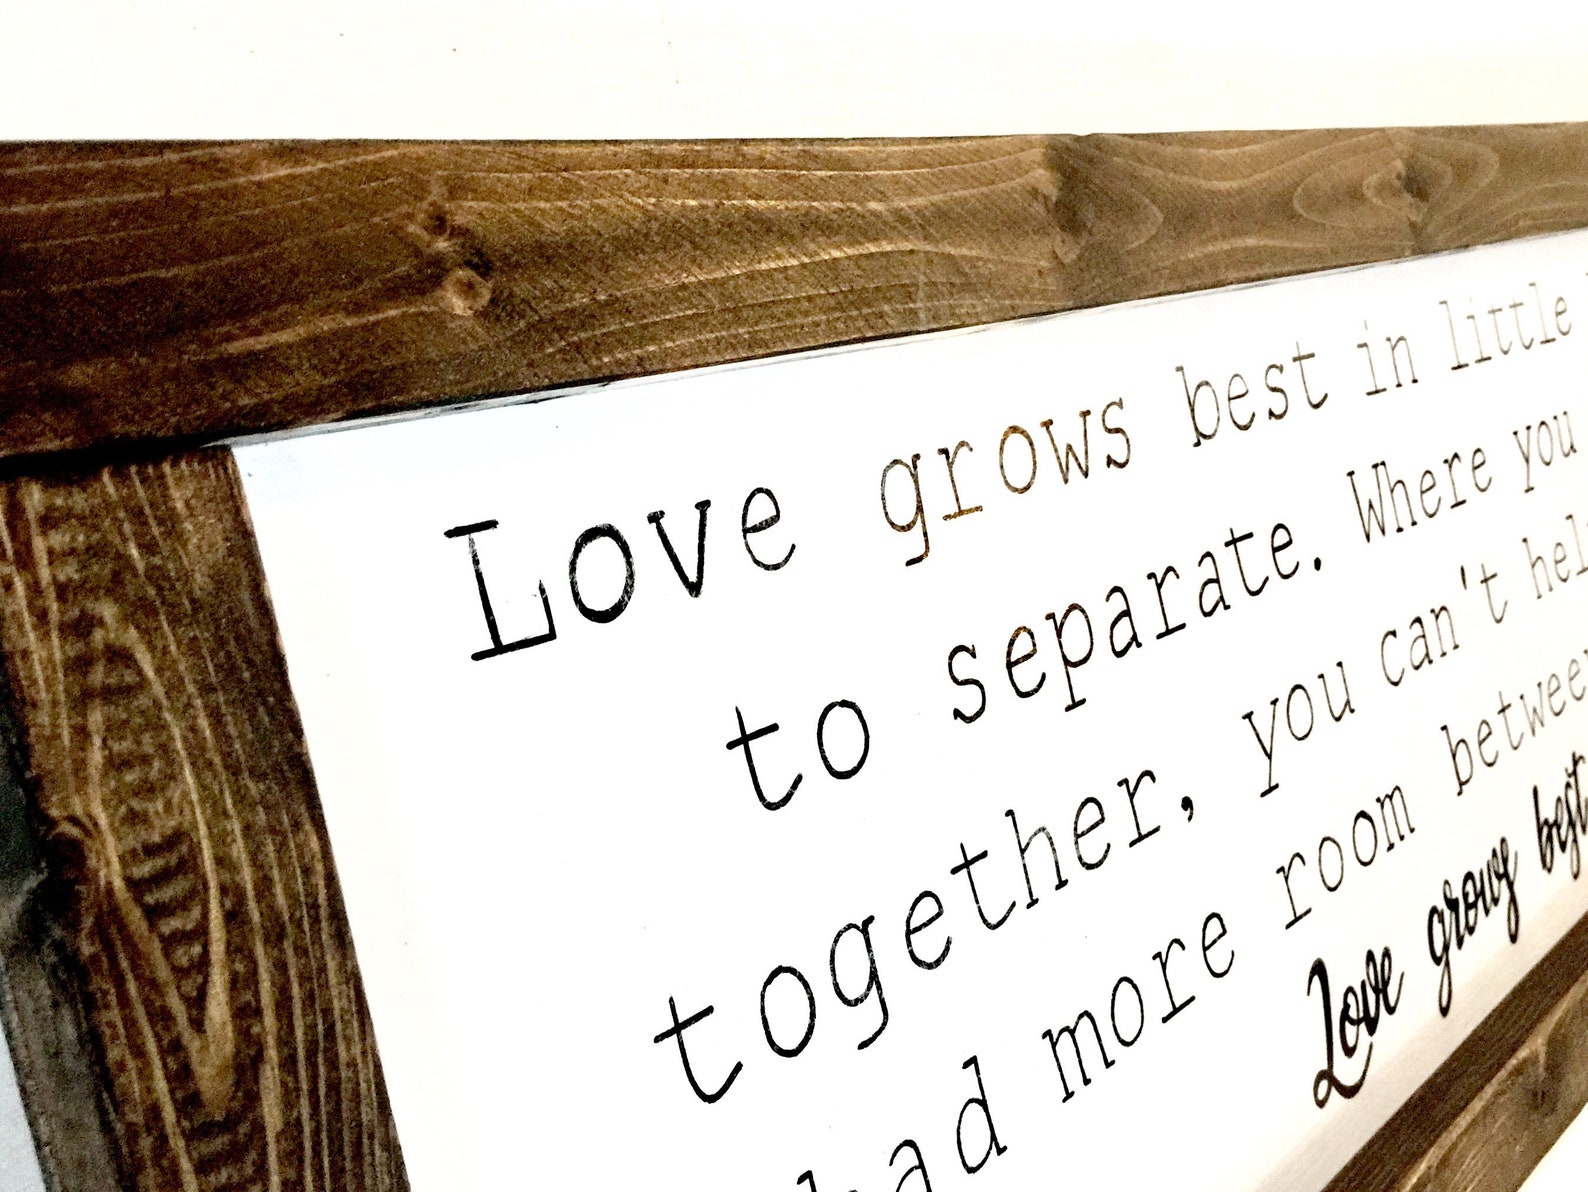 Love grows best in little
to separate. Where you
together, you can't
had more room
Love grows best